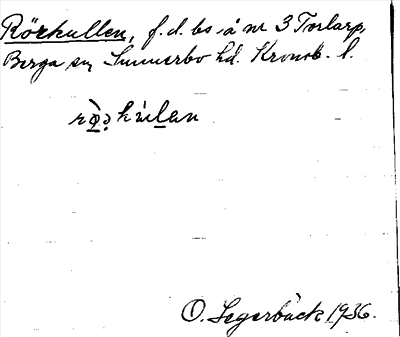 Rörkullen, f.d. bs å nr 3 Torlarp,
Berga sn Sunnerbo hd. Kronob. l.
O. Segerbäck 1936.